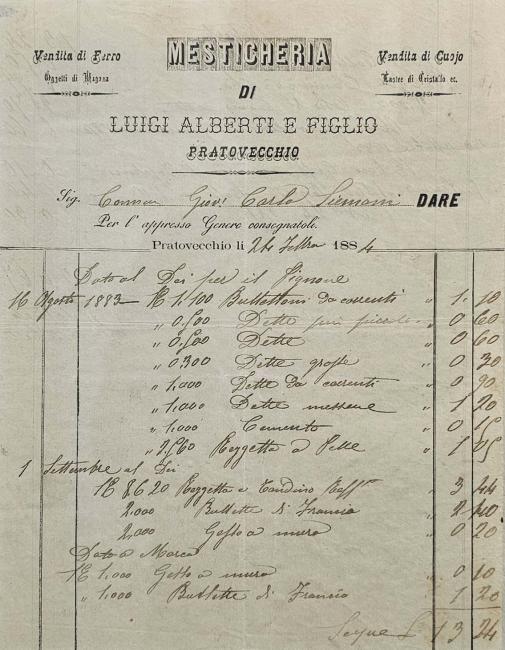 Vendita di Ferro
Oggetti di Magona
MESTICHERIA
Vendita di Cuojo
Lastre di Cristallo ec.
DI
LUIGI ALBERTI E FIGLIO
PRATOVECCHIO
Sig. Giov. Carlo Siemoni DARE
Per l'appresso Genere consegnatole.
Pratovecchio li 24 Febbra 1884
Dato al Dei per il Pignone
16 Agosto 1883 K 1,100 Bullettoni da correnti „ 1. 10
„ 0,500 Dette più piccole „ 0 60
„ 0,500 Dette „ 0 60
„ 0,300 Dette grosse „ 0 30
„ 1,000 Dette da correnti „ 0 90
„ 1,000 Dette mezzane „ 1 20
„ 1,000 Cemento „ 0 15
„ 2,560 Reggetta a Pelle „ 1 05
1 Settembre al Dei
K 8620 Reggetta e Tondino „ 3 44
2,000 Bullette di Francia „ 2 40
2,000 Gesso a muro „ 0 20
Dato a Marca
K 1,000 Gesso a muro „ 0 10
„ 1,000 Bullette di Francia 1 20
Segue L 13 24